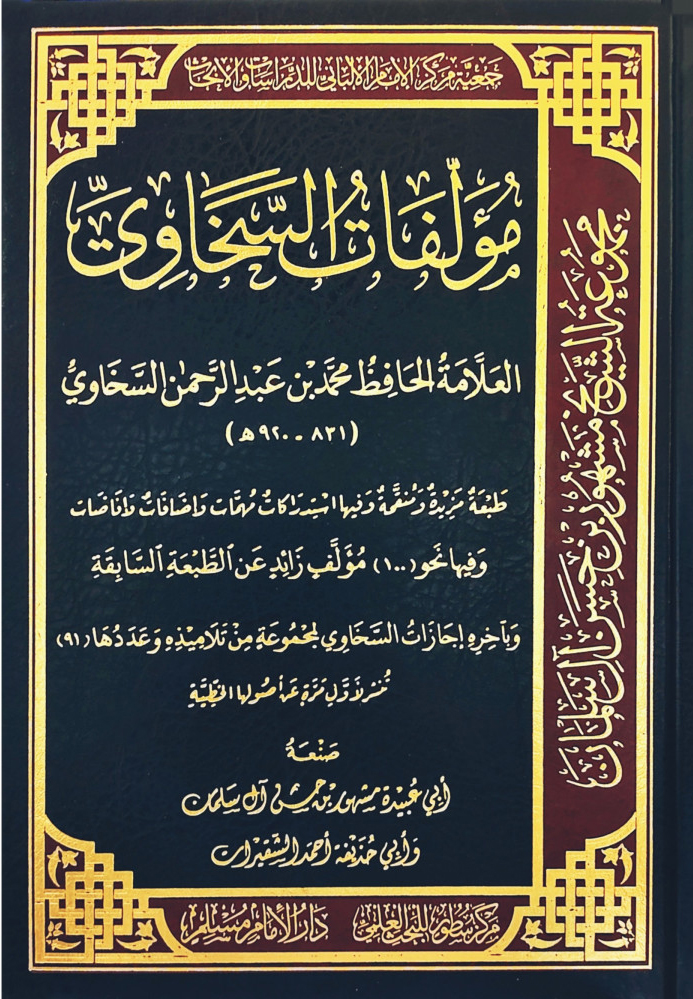 جمعية مركز الإمام الألباني للدراسات والأبحاث
مُؤَلَّفَاتُ السَّخَاوِيِّ
العَلَّامَةُ الحَافِظُ مُحَمَّدُ بْنُ عَبْدِ الرَّحمٰنِ السَّخَاوِيُّ
(٨٣١ - ٩٢٠هـ)
طَبْعَةٌ مَزِيدَةٌ وَمُنَقَّحَةٌ وَفِيهَا اسْتِدْرَاكَاتٌ مُهِمَّات وَإِضَافَاتٌ وَإِفَاضَات
وَفِيهَا نَحْو (١٠٠) مُؤَلَّفٍ زَائِدٍ عَنِ ٱلطَّبْعَةِ ٱلسَّابِقَةِ
وَبِآخِرِهِ إِجَازَاتُ السَّخَاوِي لِمَجْمُوعَةٍ مِنْ تَلَامِيذِهِ وَعَدَدُهَا (٩١)
تُنْشَر لِأَوَّلِ مَرَّةٍ عَنْ أُصُولِهَا الخَطِّيَّةِ
صَنْعَةُ
أَبِي عُبَيْدَة مَشْهُور بْن حَسَن آل سَلْمَان
وَأَبِي حُذَيْفَة أَحْمَد الشُّقَيْرَات
مركز سطور للبحث العلمي
دَارُ الْإِمَامِ مُسْلِم
مجموعة الشيخ مشهور بن حسن آل سلمان